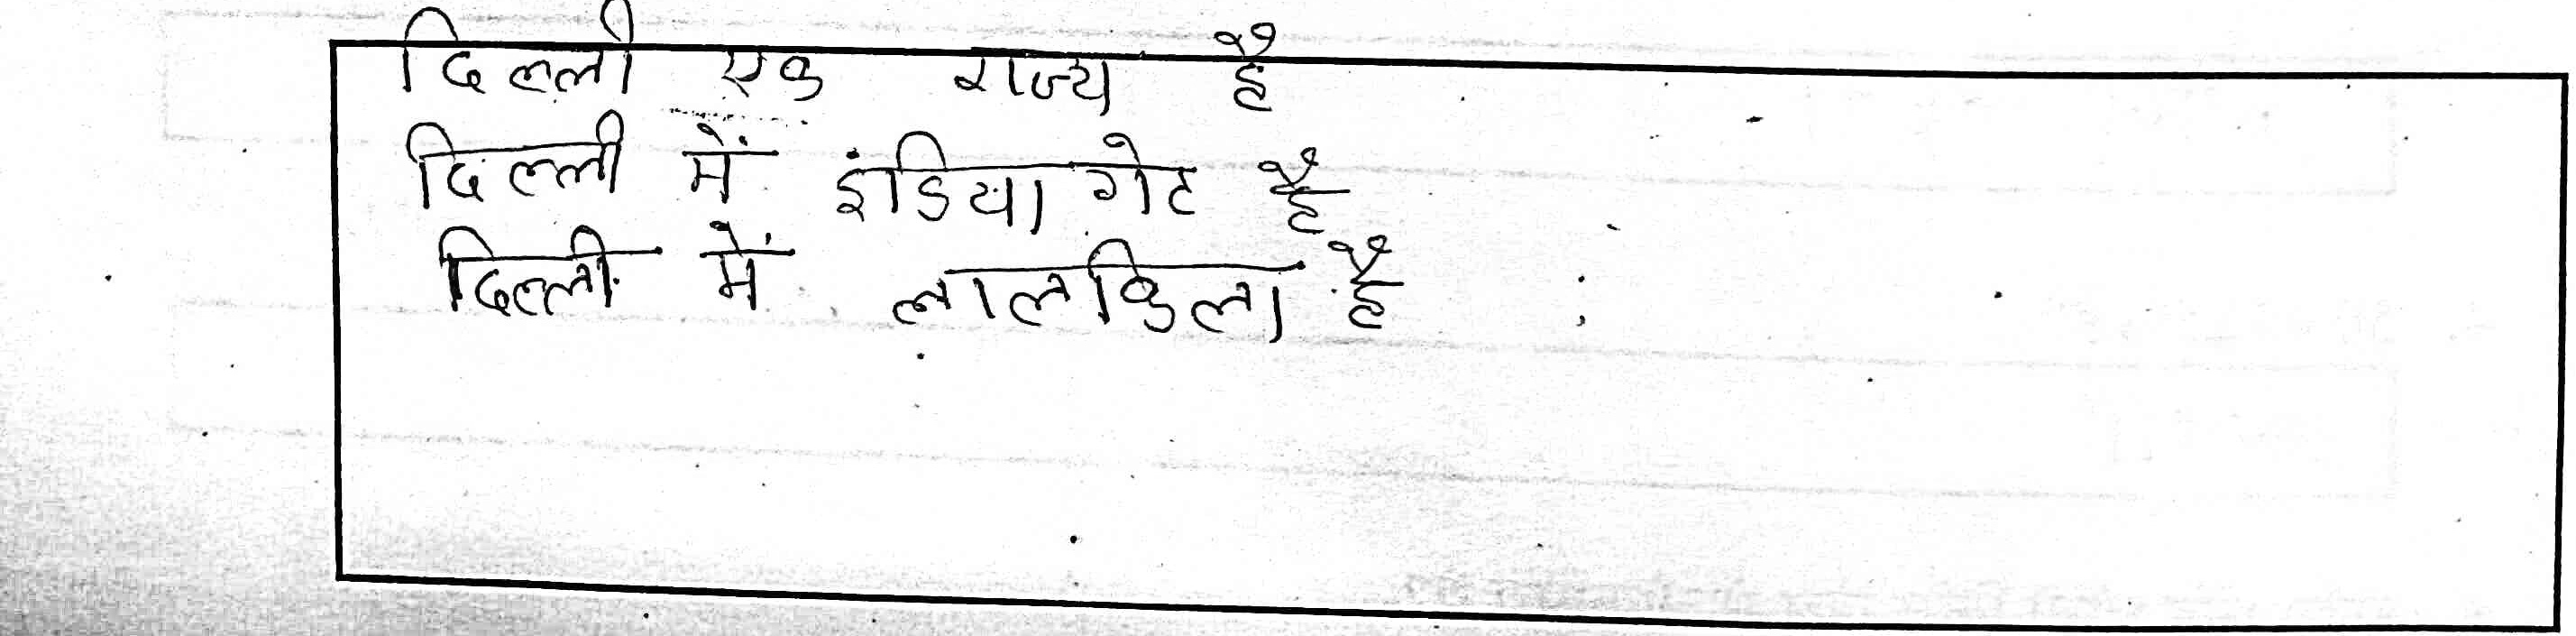 दिल्ली एक राज्य है
दिल्ली में इंडिया गेट है
दिल्ली में लालकिला है